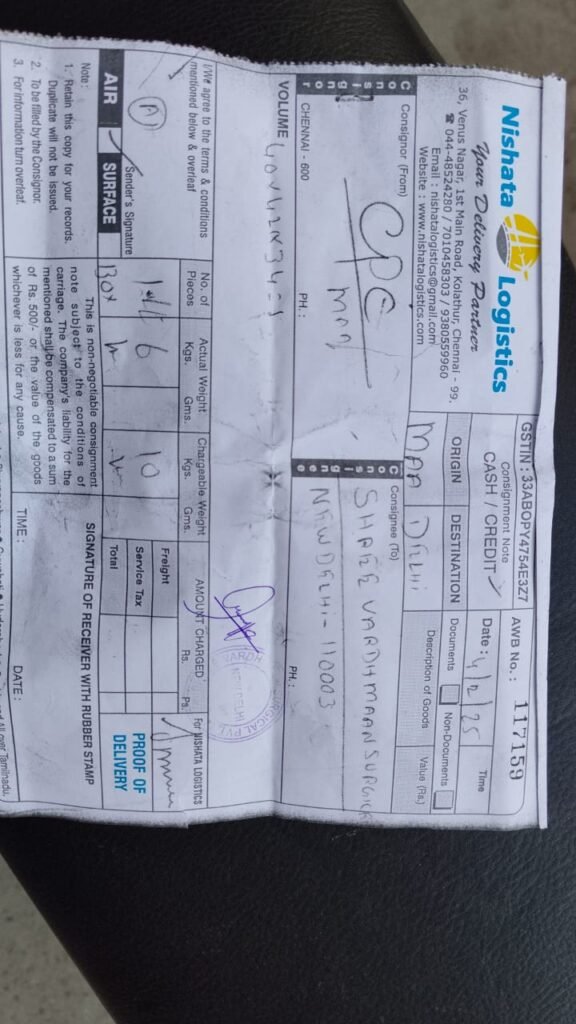 Nishata Logistics
Your Delivery Partner
36, Venus Nagar, 1st Main Road, Kolathur, Chennai - 99.
☎ 044-48524280 / 7010458303 / 9380559960
Email : nishatalogistics@gmail.com
Website : www.nishatalogistics.com
GSTIN : 33ABOPY4754E3Z7
Consignment Note
CASH / CREDIT
AWB No. : 117159
Date : 4/2/25
Time
ORIGIN
DESTINATION
MAA
DELHI
Documents
Non-Documents
Description of Goods
Value (Rs.)
Consignor
Consignor (From)
CPC
MAA
CHENNAI - 600
PH. :
Consignee
Consignee (To)
SHREE VARDHMAAN SURGICA
NEW DELHI - 110003
PH. :
VOLUME
I/We agree to the terms & conditions
mentioned below & overleaf
Sender's Signature
AIR
SURFACE
No. of
Pieces
Actual Weight
Kgs.
Gms.
Chargeable Weight
Kgs.
Gms.
AMOUNT CHARGED
Rs.
Ps.
BOX
6
10
Freight
Service Tax
Total
For NISHATA LOGISTICS
PROOF OF
DELIVERY
Note :
1. Retain this copy for your records.
Duplicate will not be issued.
2. To be filled by the Consignor.
3. For information turn overleaf.
This is non-negotiable consignment
note subject to the conditions of
carriage. The company's liability for the
mentioned shall be compensated to a sum
of Rs. 500/- or the value of the goods
whichever is less for any cause.
SIGNATURE OF RECEIVER WITH RUBBER STAMP
TIME :
DATE :